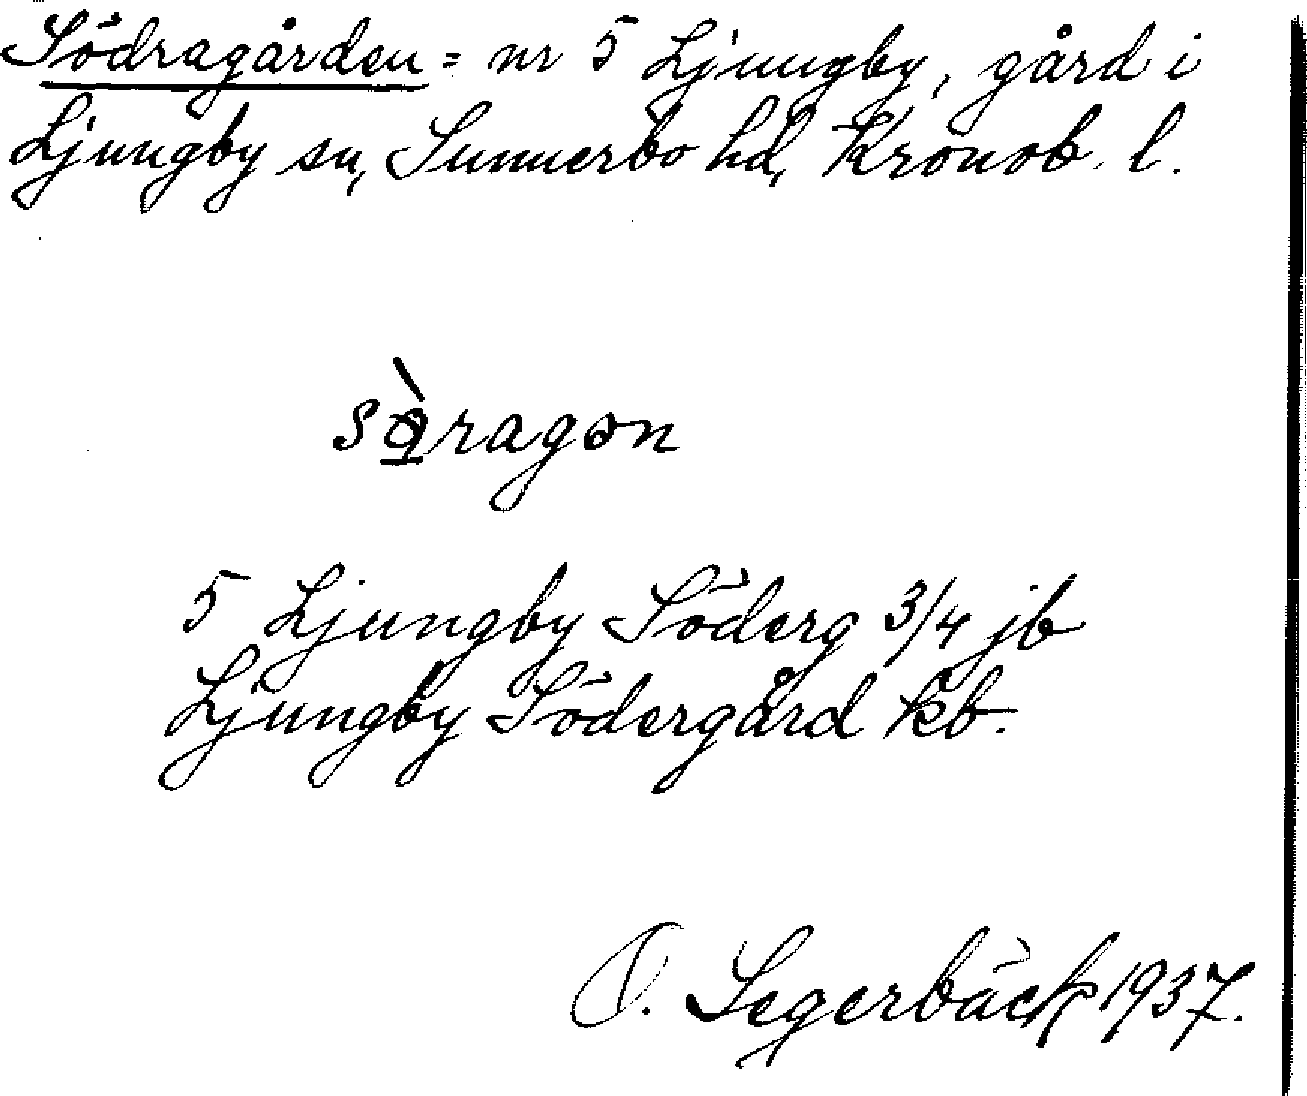 Södragården = nr 5 Ljungby, gård i
Ljungby sn, Sunnerbo hd, Kronob. l.
5 Ljungby Söderg 3/4 jb
Ljungby Södergård kb.
O. Segerbäck 1937.